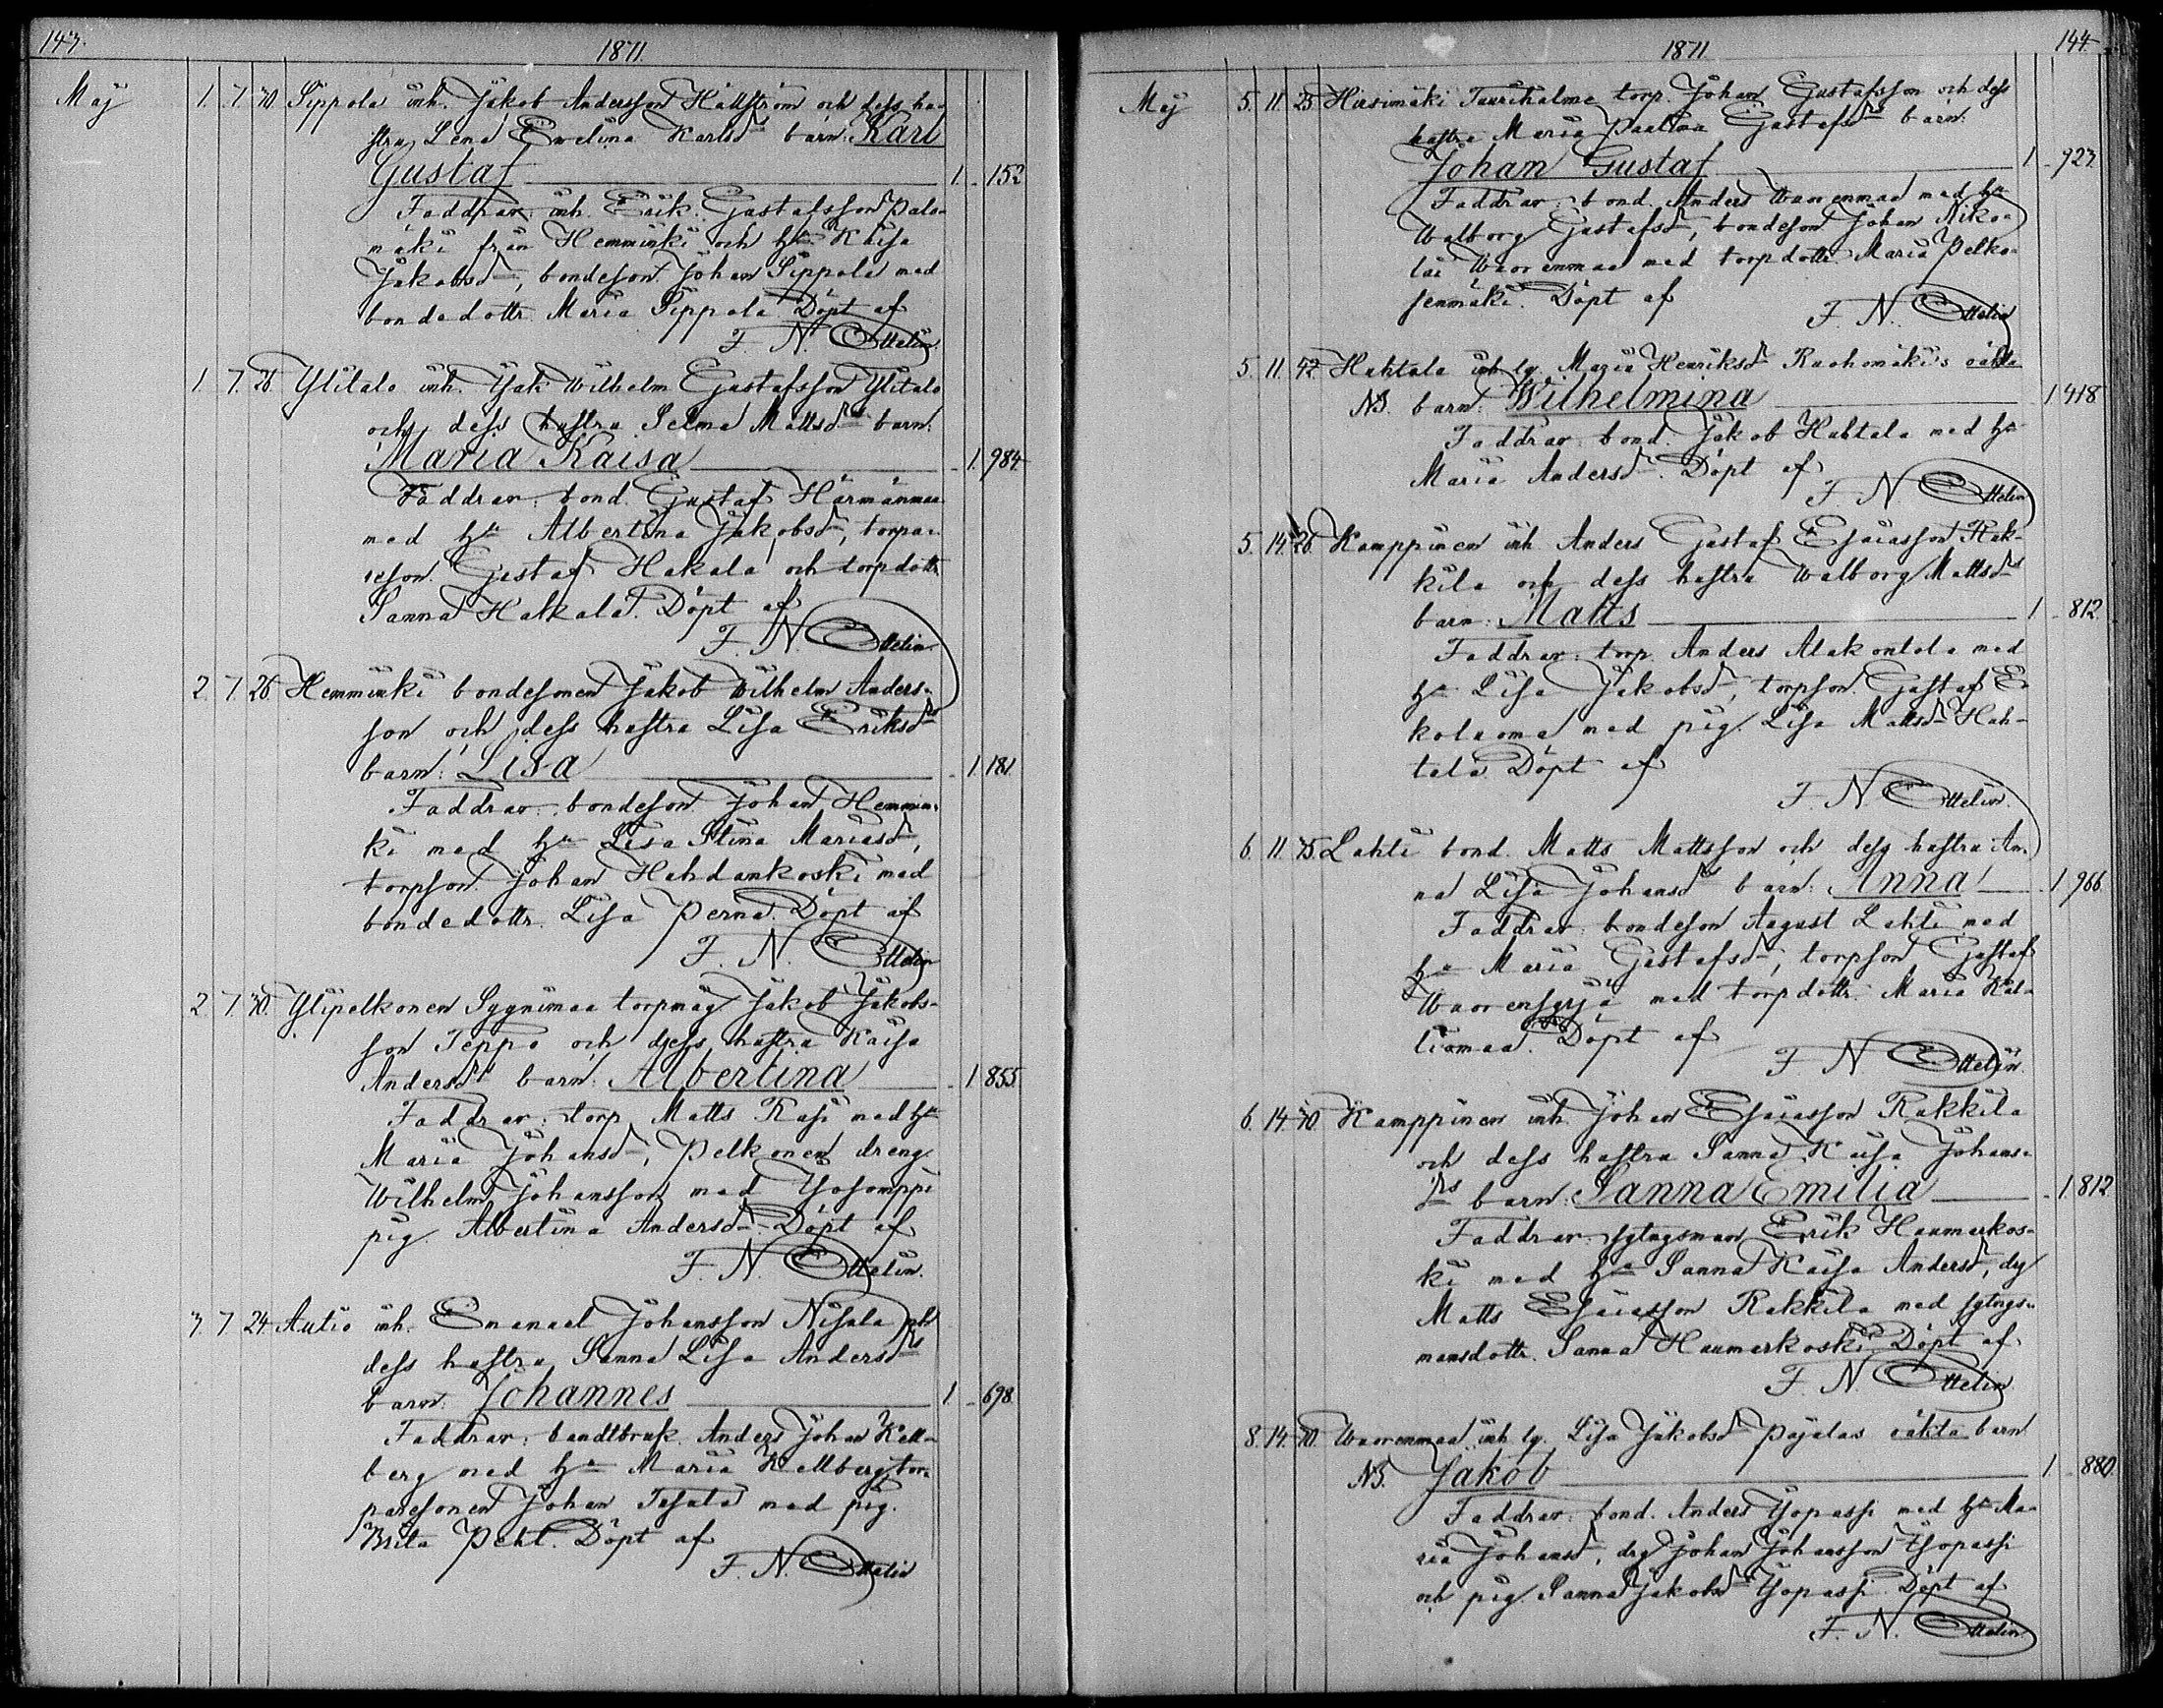 143.
1871.
Maj 1. 7. 30. Sippola inh. Jakob Andersson Hällström och dess hu-
stru Lena Ewelina Karlsdrs barn: Karl
Gustaf 1. 152
Faddrar: inh. Erik Gustafsson Palo-
mäki från Hemminki och hu Kaisa
Jakobsdr, bondeson Johan Sippola med
bondedottr Maria Sippola. Döpt af
F. N. Ottelin.
1. 7. 26. Ylitalo inh. Jak. Wilhelm Gustafsson Ylitalo
och dess hustru Selma Mattsdrs barn:
Maria Kaisa 1. 984
Faddrar: bond. Gustaf Härmänmaa
med hu Albertina Jakobsdr, torpa-
reson Gustaf Hakala och torpdottr
Sanna Hakala. Döpt af
F. N. Ottelin.
2. 7. 26. Hemminki bondesonen Jakob Wilhelm Anders-
son och dess hustru Lisa Eriksdrs
barn: Lisa 1. 181
Faddrar: bondeson Johan Hemmin-
ki med hu Lisa Stina Mariasdr,
torpson Johan Hahdankoski med
bondedottr. Lisa Perna. Döpt af
F. N. Ottelin
2. 7. 30. Ylipelkonen Sygnimaa torpmåg Jakob Jakobs-
son Teppo och dess hustru Kaisa
Andersdrs barn: Albertina 1. 855
Faddrar: torp. Matts Rasi med hu
Maria Johansdr, Pelkonen dreng
Wilhelm Johansson med Yosomppi
pig. Albertina Andersdr. Döpt af
F. N. Ottelin.
3. 7. 24. Autio inh. Emanael Johansson Nisula och
dess hustru Sanna Lisa Andersdrs
barn: Johannes 1. 698
Faddrar: landtbruk. Anders Johan Kell-
berg med hu Maria Kellberg, tor-
paresonen Johan Tasala med pig.
Brita Peht. Döpt af
F. N. Ottelin
1871
144.
Maj 5. 11. 25. Hirsimäki Taurihalme torp. Johan Gustafsson och dess
hustru Maria Paulina Gustafsdrs barn:
Johan Gustaf 1. 923
Faddrar: bond. Anders Waorenmaa med hu
Walborg Gustafsdr, bondeson Johan Niko-
lai Waorenmaa med torpdottr Maria Pelko-
senmäki. Döpt af
F. N. Ottelin
5. 11. 42. Hahtala inh. lg. Maria Henriksdr Rauhomäki's oäkta
NB. barn: Wilhelmina 1 418
Faddrar: bond. Jakob Hahtala med hu
Maria Andersdr. Döpt af
F. N. Ottelin
5. 14. 26. Kamppinen inh. Anders Gustaf Esaiasson Rak-
kila och dess hustru Walborg Mattsdrs
barn: Matts 1. 812.
Faddrar: torp. Anders Alakontola med
hu Lisa Jakobsdr, torpson Gustaf E-
kolaoma med pig. Lisa Mattsdr Hah-
tala. Döpt af
F. N. Ottelin.
6. 11. 35. Lahti bond. Matts Mattsson och dess hustru An-
na Lisa Johansdrs barn: Anna 1. 966
Faddrar: bondeson August Lahti med
hu Maria Gustafsdr, torpson Gustaf
Waorensyrjä med torpdottr. Maria Kal-
liomaa. Döpt af
F. N. Ottelin.
6. 14. 30. Kamppinen inh. Johan Esaiasson Rakkila
och dess hustru Sanna Kaisa Johans-
drs barn: Sanna Emilia 1. 812
Faddrar: sytngsman Erik Haumerkos-
ki med hu Sanna Kaisa Andersdr, dg
Matts Esaiasson Rakkila med sytngs-
mansdottr. Sanna Haumerkoski. Döpt af
F. N. Ottelin
8. 14. 30. Waorenmaa inh. lg. Lisa Jakobsdr Pajalas oäkta barn
NB. Jakob 1. 880.
Faddrar: bond. Anders Yopassi med hu Ma-
ria Johansdr, drg Johan Johansson Yopassi
och pig Sanna Jakobsdr Yopassi. Döpt af
F. N. Ottelin